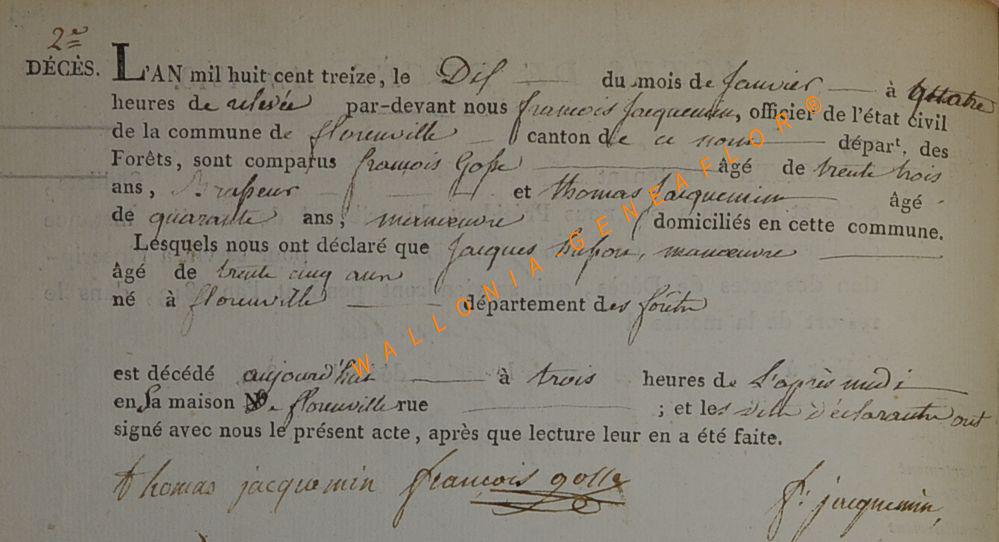 2e
DÉCÈS. L'AN mil huit cent treize, le Dix du mois de Janvier à quatre
heures de relevée par-devant nous françois Jacquemin, officier de l'état civil
de la commune de florenville canton de ce nom départ. des
Forêts, sont comparus françois Gosse âgé de trente trois
ans, Brasseur et thomas Jacquemin âgé
de quarante ans, manœuvre domiciliés en cette commune.
Lesquels nous ont déclaré que Jacques manœuvre
âgé de trente cinq ans
né à florenville département des forêts
est décédé aujourd'hui à trois heures de L'après midi
en sa maison de florenville rue ; et les dits Déclarants ont
signé avec nous le présent acte, après que lecture leur en a été faite.
thomas jacquemin françois gosse f: jacquemin,
WALLONIA GENEAFLOR ®